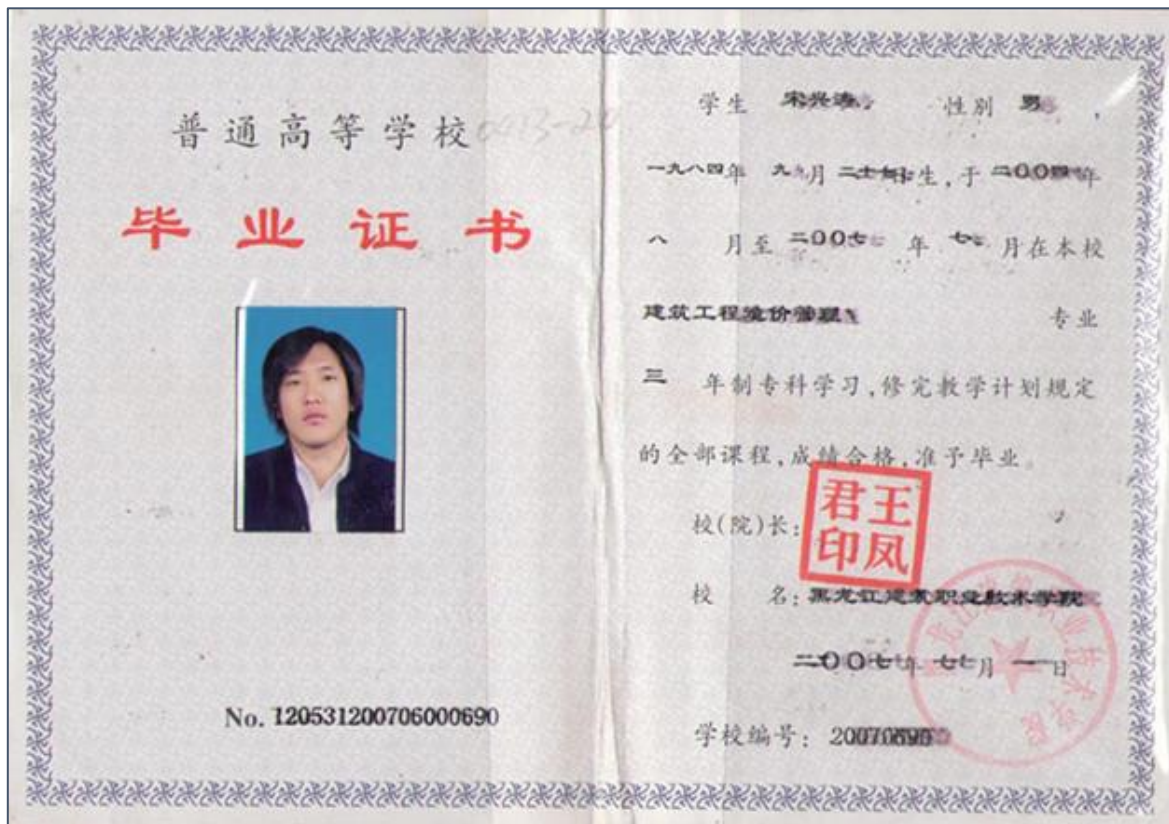 普通高等学校
0413-24
毕业证书
No. 120531200706000690
学生 宋兴涛 性别 男,
一九八四年 九月 二十七日生,于 二〇〇四年
八 月至 二〇〇七 年 七 月在本校
建筑工程造价管理 专业
三 年制专科学习,修完教学计划规定
的全部课程,成绩合格,准予毕业。
校(院)长:
王凤君印
校 名: 黑龙江建筑职业技术学院
二〇〇七年 七月 一日
学校编号: 20070690
黑龙江建筑职业技术学院